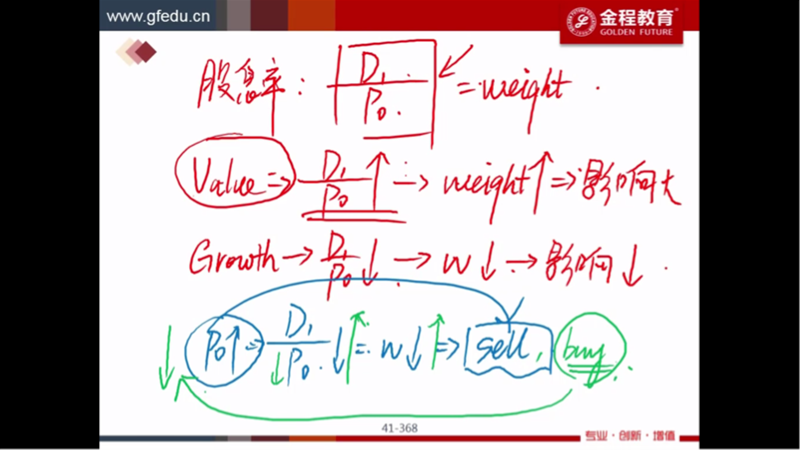 www.gfedu.cn
金程教育®
GOLDEN FUTURE
股息率: D₁/P₀ = weight.
Value ⇒ D₁/P₀ ↑ → weight ↑ ⇒ 影响大
Growth → D₁/P₀ ↓ → W ↓ → 影响 ↓.
↓ P₀↑ = D₁/↓P₀ ↓ ↑ = W ↓ ↑ ⇒ sell, buy
41-368
专业·创新·增值